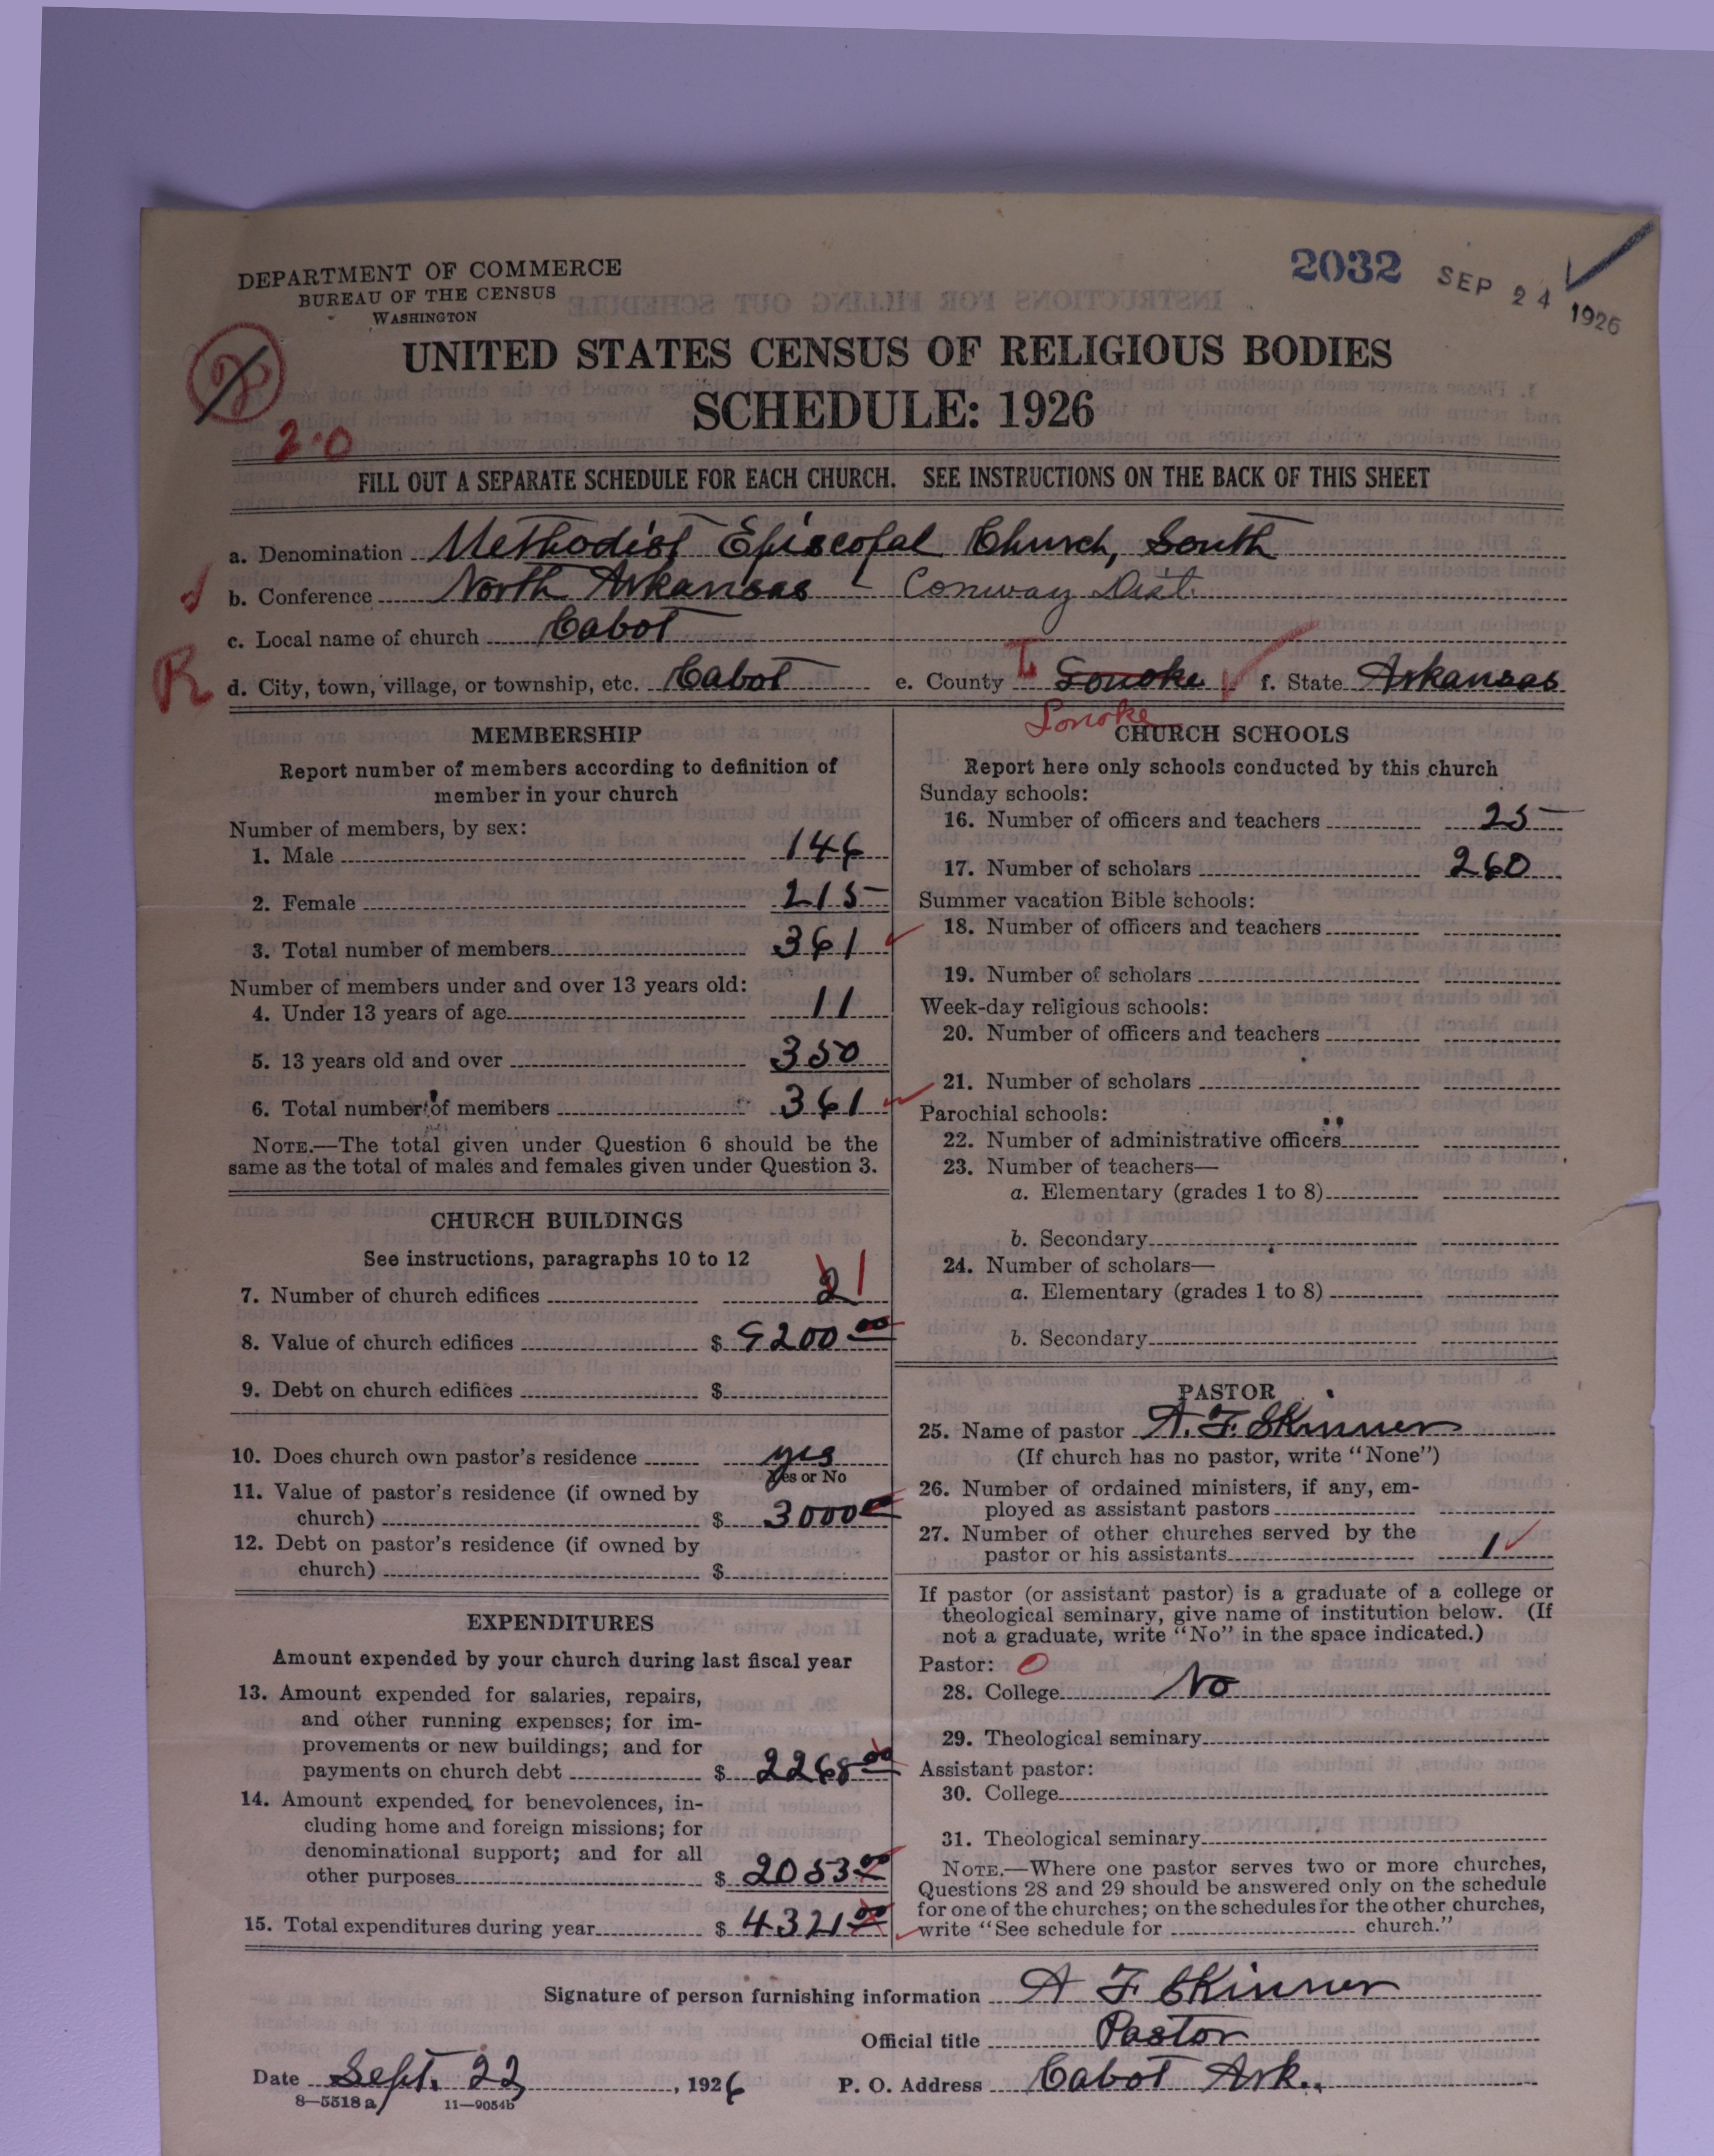 DEPARTMENT OF COMMERCE
BUREAU OF THE CENSUS
WASHINGTON
2032
SEP 24 1926
UNITED STATES CENSUS OF RELIGIOUS BODIES
SCHEDULE: 1926
2.0
FILL OUT A SEPARATE SCHEDULE FOR EACH CHURCH. SEE INSTRUCTIONS ON THE BACK OF THIS SHEET
a. Denomination Methodist Episcopal Church, South
b. Conference North Arkansas - Conway Dist.
c. Local name of church Cabot
R
d. City, town, village, or township, etc. Cabot e. County Lonoke f. State Arkansas
Lonoke
MEMBERSHIP
Report number of members according to definition of
member in your church
Number of members, by sex:
1. Male 146
2. Female 215
3. Total number of members 361
Number of members under and over 13 years old:
4. Under 13 years of age 11
5. 13 years old and over 350
6. Total number of members 361
NOTE.—The total given under Question 6 should be the
same as the total of males and females given under Question 3.
CHURCH BUILDINGS
See instructions, paragraphs 10 to 12
7. Number of church edifices 2 1
8. Value of church edifices $ 9200 00
9. Debt on church edifices $
10. Does church own pastor's residence yes
Yes or No
11. Value of pastor's residence (if owned by
church) $ 3000
12. Debt on pastor's residence (if owned by
church) $
EXPENDITURES
Amount expended by your church during last fiscal year
13. Amount expended for salaries, repairs,
and other running expenses; for im-
provements or new buildings; and for
payments on church debt $ 2268 00
14. Amount expended for benevolences, in-
cluding home and foreign missions; for
denominational support; and for all
other purposes $ 2053 00
15. Total expenditures during year $ 4321 00
CHURCH SCHOOLS
Report here only schools conducted by this church
Sunday schools:
16. Number of officers and teachers 25
17. Number of scholars 260
Summer vacation Bible schools:
18. Number of officers and teachers
19. Number of scholars
Week-day religious schools:
20. Number of officers and teachers
21. Number of scholars
Parochial schools:
22. Number of administrative officers
23. Number of teachers—
a. Elementary (grades 1 to 8)
b. Secondary
24. Number of scholars—
a. Elementary (grades 1 to 8)
b. Secondary
PASTOR
25. Name of pastor A. F. Skinner
(If church has no pastor, write "None")
26. Number of ordained ministers, if any, em-
ployed as assistant pastors
27. Number of other churches served by the
pastor or his assistants 1
If pastor (or assistant pastor) is a graduate of a college or
theological seminary, give name of institution below. (If
not a graduate, write "No" in the space indicated.)
Pastor: 0
28. College No
29. Theological seminary
Assistant pastor:
30. College
31. Theological seminary
NOTE.—Where one pastor serves two or more churches,
Questions 28 and 29 should be answered only on the schedule
for one of the churches; on the schedules for the other churches,
write "See schedule for church."
Signature of person furnishing information A F Skinner
Official title Pastor
Date Sept. 22, 1926 P. O. Address Cabot Ark.
8—5518 a 11—9054b